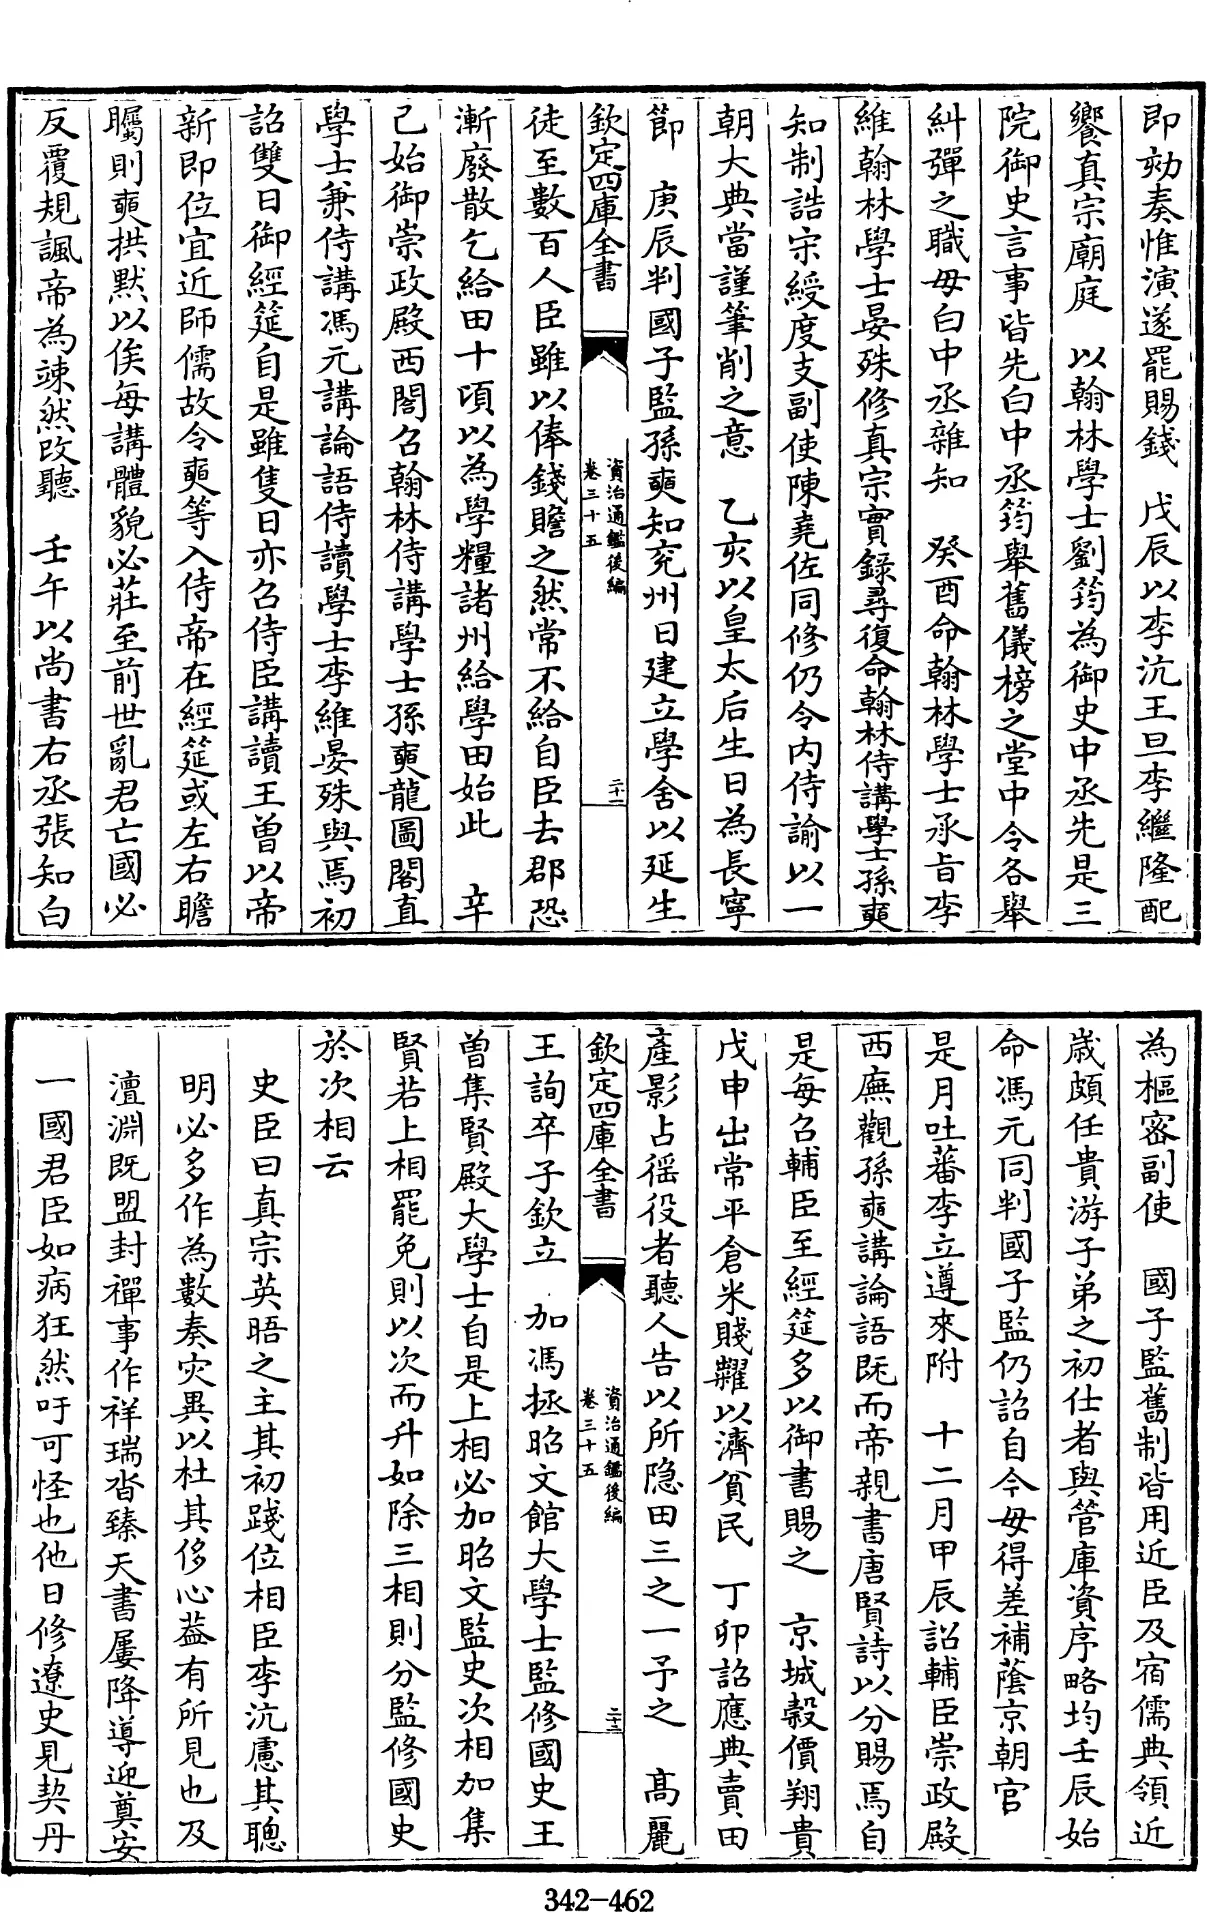 即劾奏惟演遂罷賜錢　戊辰以李沆王旦李繼隆配
饗真宗廟庭　以翰林學士劉筠為御史中丞先是三
院御史言事皆先白中丞筠舉舊儀榜之堂中令各舉
糾彈之職毋白中丞雜知　癸酉命翰林學士承旨李
維翰林學士晏殊修真宗實錄尋復命翰林侍講學士孫奭
知制誥宋綬度支副使陳堯佐同修仍令內侍諭以一
朝大典當謹筆削之意　乙亥以皇太后生日為長寧
節　庚辰判國子監孫奭知兖州日建立學舍以延生
欽定四庫全書
資治通鑑後編
卷三十五
二十一
徒至數百人臣雖以俸錢贍之然常不給自臣去郡恐
漸廢散乞給田十頃以為學糧諸州給學田始此　辛
已始御崇政殿西閣召翰林侍講學士孫奭龍圖閣直
學士兼侍講馮元講論語侍讀學士李維晏殊與焉初
詔雙日御經筵自是雖隻日亦召侍臣講讀王曾以帝
新即位宜近師儒故令奭等入侍帝在經筵或左右瞻
矚則奭拱默以俟每講體貌必莊至前世亂君亡國必
反覆規諷帝為竦然改聽　壬午以尚書右丞張知白
為樞密副使　國子監舊制皆用近臣及宿儒典領近
歲頗任貴游子弟之初仕者與管庫資序略均壬辰始
命馮元同判國子監仍詔自今毋得差補蔭京朝官
是月吐蕃李立遵來附　十二月甲辰詔輔臣崇政殿
西廡觀孫奭講論語既而帝親書唐賢詩以分賜焉自
是每召輔臣至經筵多以御書賜之　京城穀價翔貴
戊申出常平倉米賤糶以濟貧民　丁卯詔應典賣田
產影占徭役者聽人告以所隱田三之一予之　高麗
欽定四庫全書
資治通鑑後編
卷三十五
二十二
王詢卒子欽立　加馮拯昭文館大學士監修國史王
曾集賢殿大學士自是上相必加昭文監史次相加集
賢若上相罷免則以次而升如除三相則分監修國史
於次相云
史臣曰真宗英晤之主其初踐位相臣李沆慮其聰
明必多作為數奏灾異以杜其侈心葢有所見也及
澶淵既盟封禪事作祥瑞沓臻天書屢降導迎奠安
一國君臣如病狂然吁可怪也他日修遼史見契丹
342-462